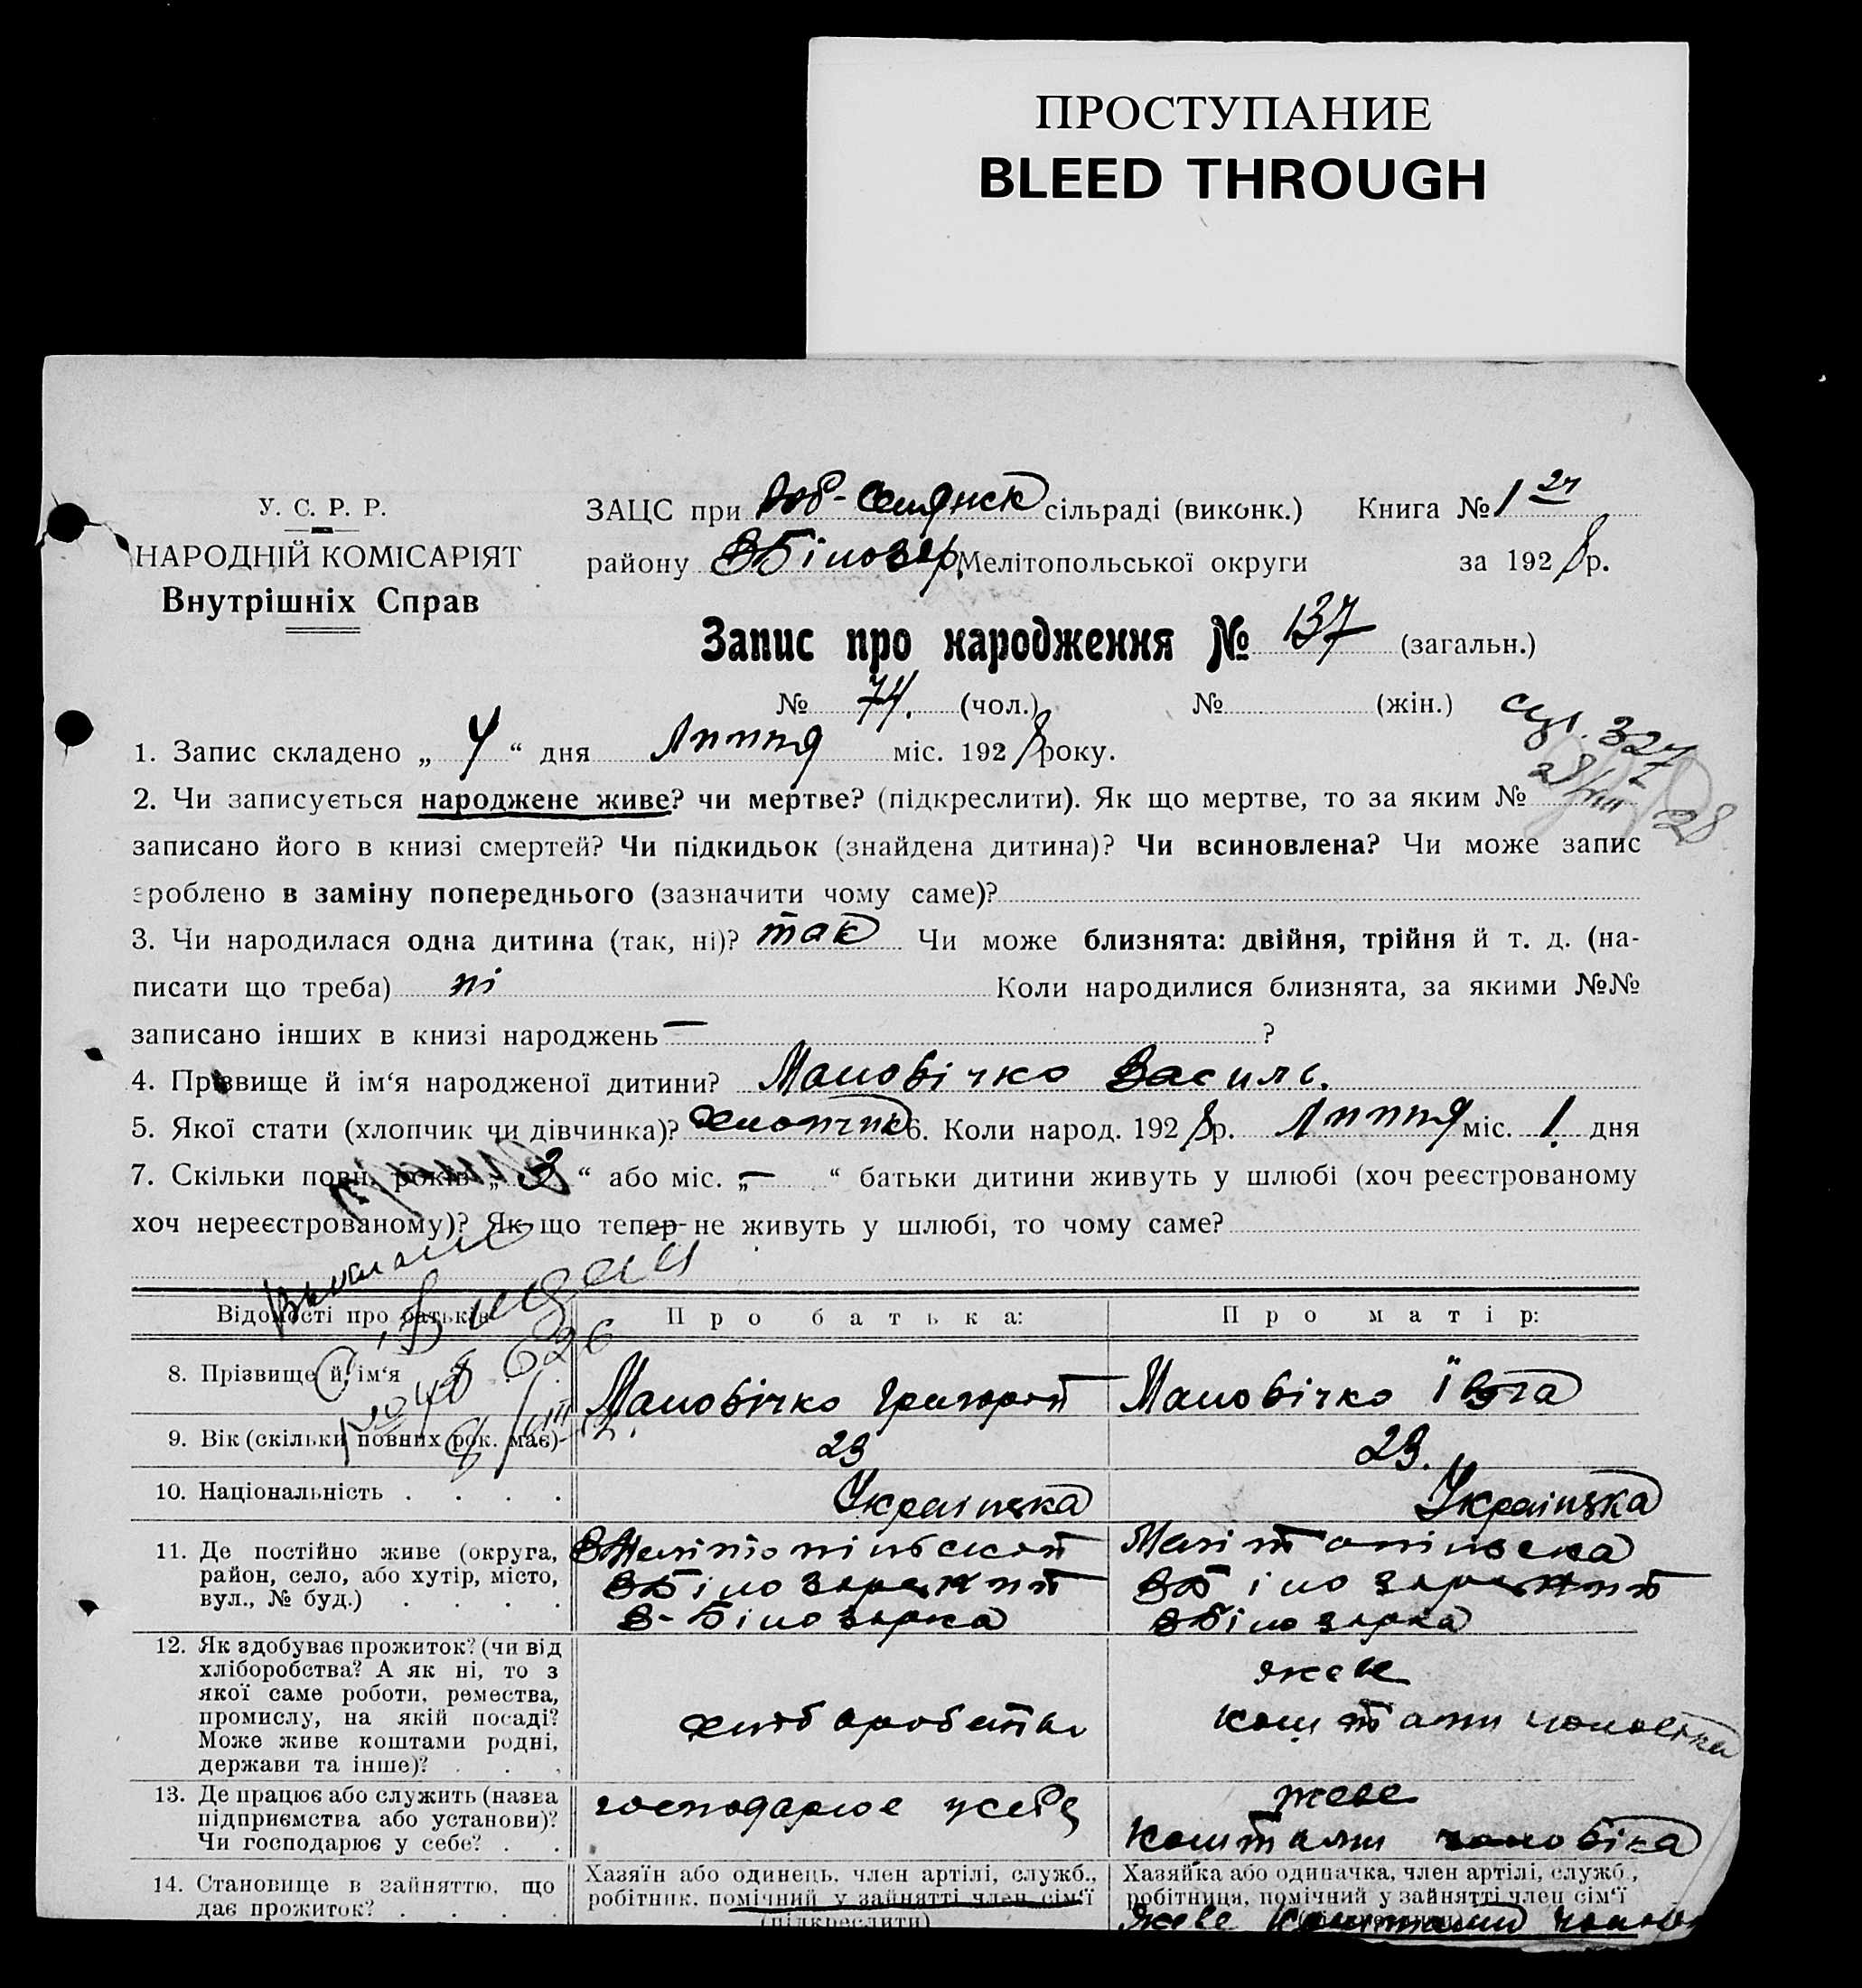 ПРОСТУПАНИЕ
BLEED THROUGH
У. С. Р. Р.
НАРОДНІЙ КОМІСАРІЯТ
Внутрішніх Справ
ЗАЦС при сільраді (виконк.) Книга № 1
району В Білозер. Мелітопольської округи за 1928 р.
Запис про народження № 137 (загальн.)
№ 74. (чол.) № (жін.)
1. Запис складено „ 4 “ дня Липня міс. 1928 року.
2. Чи записується народжене живе? чи мертве? (підкреслити). Як що мертве, то за яким №
записано його в книзі смертей? Чи підкидьок (знайдена дитина)? Чи всиновлена? Чи може запис
зроблено в заміну попереднього (зазначити чому саме)?
3. Чи народилася одна дитина (так, ні)? так Чи може близнята: двійня, трійня й т. д. (на-
писати що треба) ні Коли народилися близнята, за якими №№
записано інших в книзі народжень — ?
4. Прізвище й ім‘я народженої дитини? Маловічко Василь.
5. Якої стати (хлопчик чи дівчинка)? хлопчик 6. Коли народ. 1928 р. Липня міс. 1. дня
7. Скільки повн. років „ 3 “ або міс. „ — “ батьки дитини живуть у шлюбі (хоч реєстрованому
хоч нереєстрованому)? Як що тепер не живуть у шлюбі, то чому саме?
Відомості про батьків
Про батька:
Про матір:
8. Прізвище й ім‘я
Маловічко Григорій
Маловічко Ївга
9. Вік (скільки повних рок. має)
23
23.
10. Національність . . . .
Українська
Українська
11. Де постійно живе (округа,
район, село, або хутір, місто,
вул., № буд.) . . . .
В Білозерка
В Білозерка
12. Як здобуває прожиток? (чи від
хліборобства? А як ні, то з
якої саме роботи, ремества,
промислу, на якій посаді?
Може живе коштами родні,
держави та інше)? . . .
живе
коштами чоловіка
13. Де працює або служить (назва
підприємства або установи)?
Чи господарює у себе? . .
господарює у себе
живе
коштами чоловіка
14. Становище в зайняттю, що
дає прожиток? . . . .
Хазяїн або одинець, член артілі, служб.,
робітник, помічний у зайнятті член сім‘ї
(підкреслити)
Хазяйка або одиначка, член артілі, служб.,
робітниця, помічний у зайнятті член сім‘ї
живе коштами